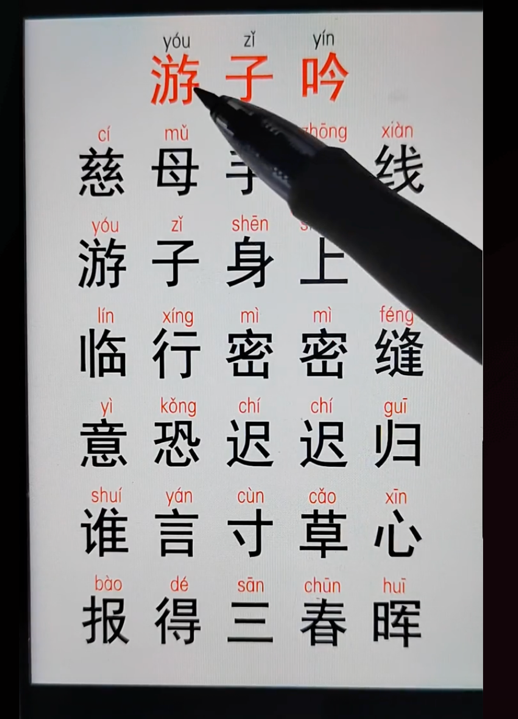 yóu zǐ yín
游子吟
cí mǔ zhōng xiàn
慈母手线
yóu zǐ shēn
游子身上
lín xíng mì mì féng
临行密密缝
yì kǒng chí chí guī
意恐迟迟归
shuí yán cùn cǎo xīn
谁言寸草心
bào dé sān chūn huī
报得三春晖